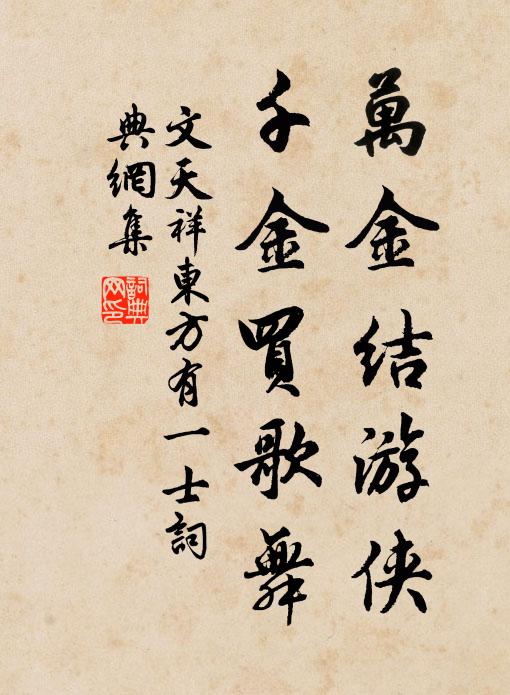 萬金結游俠
千金買歌舞
文天祥東方有一士詞
典網集
詞典
网印